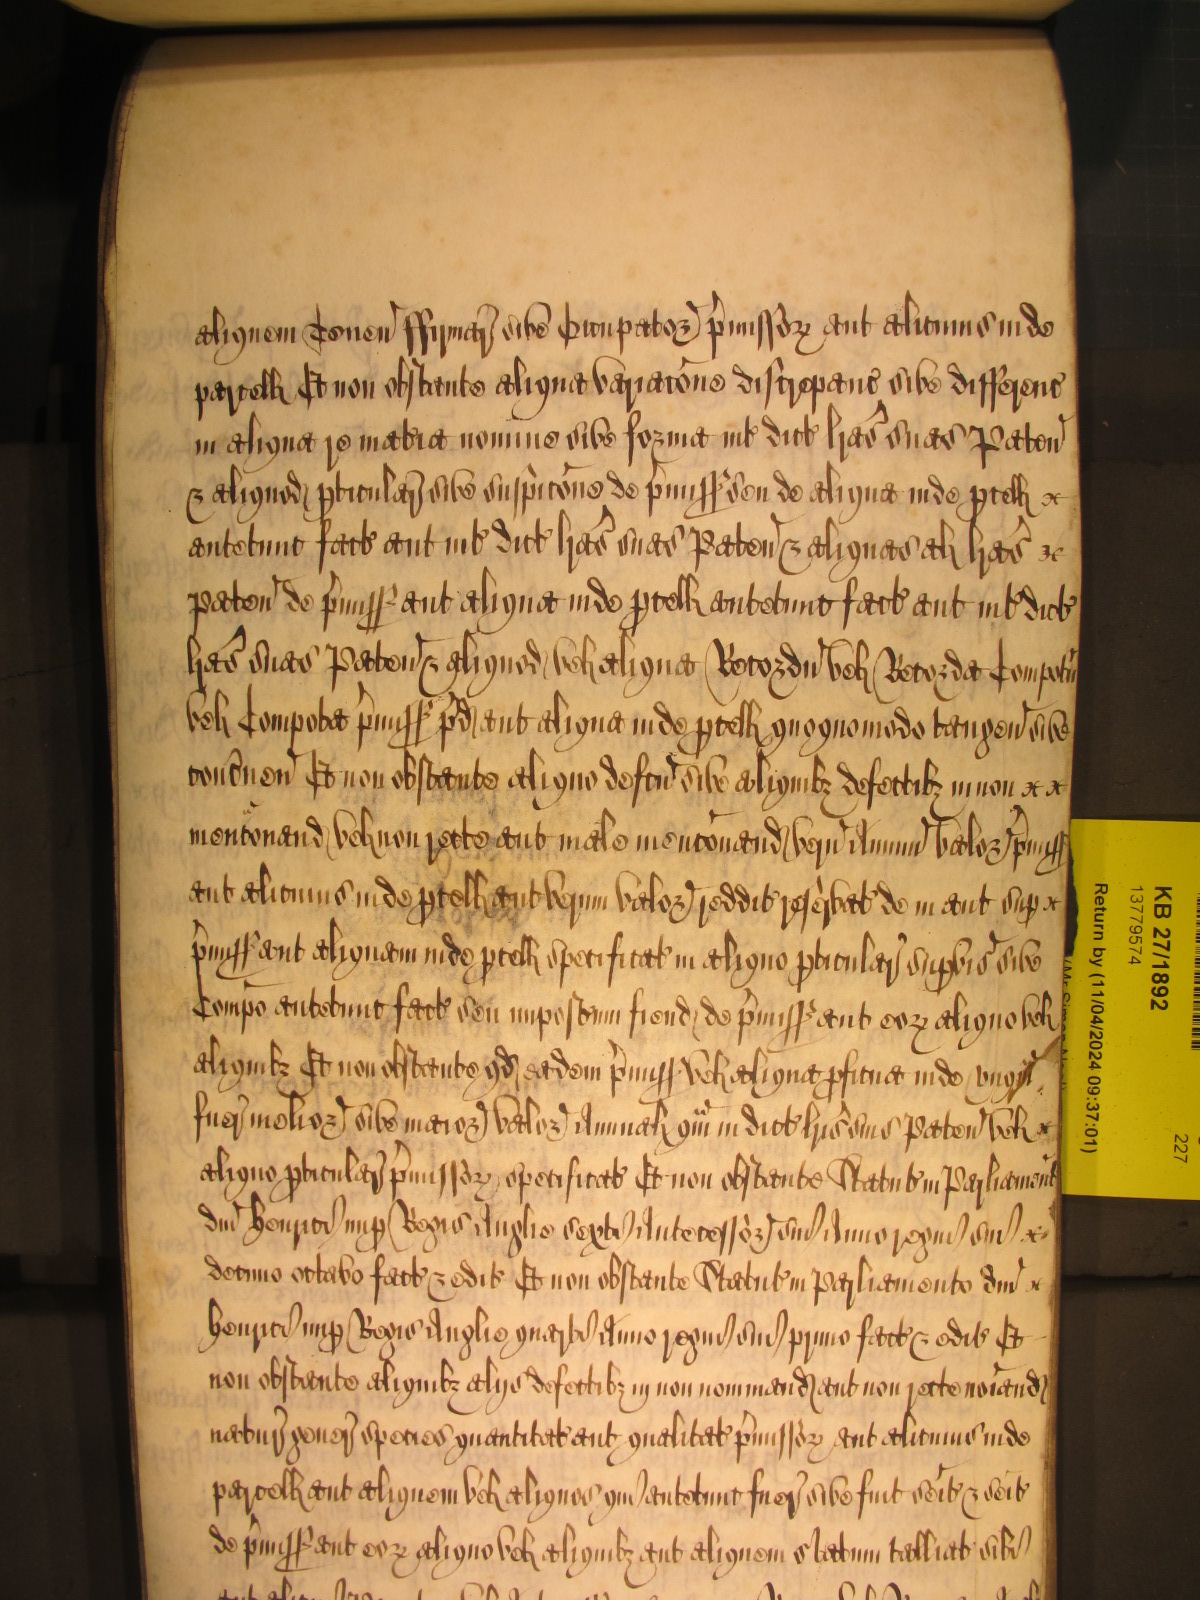 aliquem Tenen' ffirmar' sive Occupator' p'missor' aut alicuius inde
parcell' Et non obstante aliqua variacone discrepanc' sive differenc'
in aliqua re materia nomine sive forma int' dict' l'ras suas Paten'
& aliquod p'ticular' sive suspicone de p'miss' seu de aliqua inde p'cell'
antetunc fact' aut int' dict' l'ras suas Paten' & aliquas al' l'ras
paten' de p'miss' aut aliqua inde p'cell' antetunc fact' aut int' dict'
l'ras suas Paten' & aliquod vel aliqua Recordu' vel Recorda Compotu'
vel Compota p'miss' p'd' aut aliqua inde p'cell' quoquomodo tangen' sive
conc'nen' Et non obstante aliquo defcu' sive aliquib' defectib' in non
menconand' vel non recte aut male menconand' veru' Annuu' valor' p'miss'
aut alicuius inde p'cell' aut verum valor' reddit' reservat' de in aut sup'
p'miss' aut aliquam inde p'cell' specificat' in aliquo p'ticular' supvis' sive
Compo antetunc fact' seu imposteru' fiend' de p'miss' aut eor' aliquo vel
aliquib' Et non obstante qd' eadem p'miss' vel aliqua p'ficua inde
fuer' melior' sive maior' valor' Annual' qm' in dict' l'ris suis Paten' vel
aliquo p'ticular' p'missor' specificat' Et non obstante Statut' in Parliament'
dni' Henrici nup' Regis Anglie sexti Antecessor' sui Anno regni sui
decimo octavo fact' & edit' Et non obstante Statut' in Parliamento dni'
Henrici nup' Regis Anglie quarti Anno regni sui primo fact' & edit' Et
non obstante aliquib' alijs defectib' in non nominand' aut non recte no'iand'
natur' gener' species quantitat' aut qualitat' p'missor' aut alicuius inde
parcell' aut aliquem vel aliquos qui antetunc fuer' sive fuit seit' & seit'
de p'miss' aut eor' aliquo vel aliquib' aut aliquem statum talliat' sibi
KB 27/1892
13779574
Return by (11/04/2024 09:37:01)
227